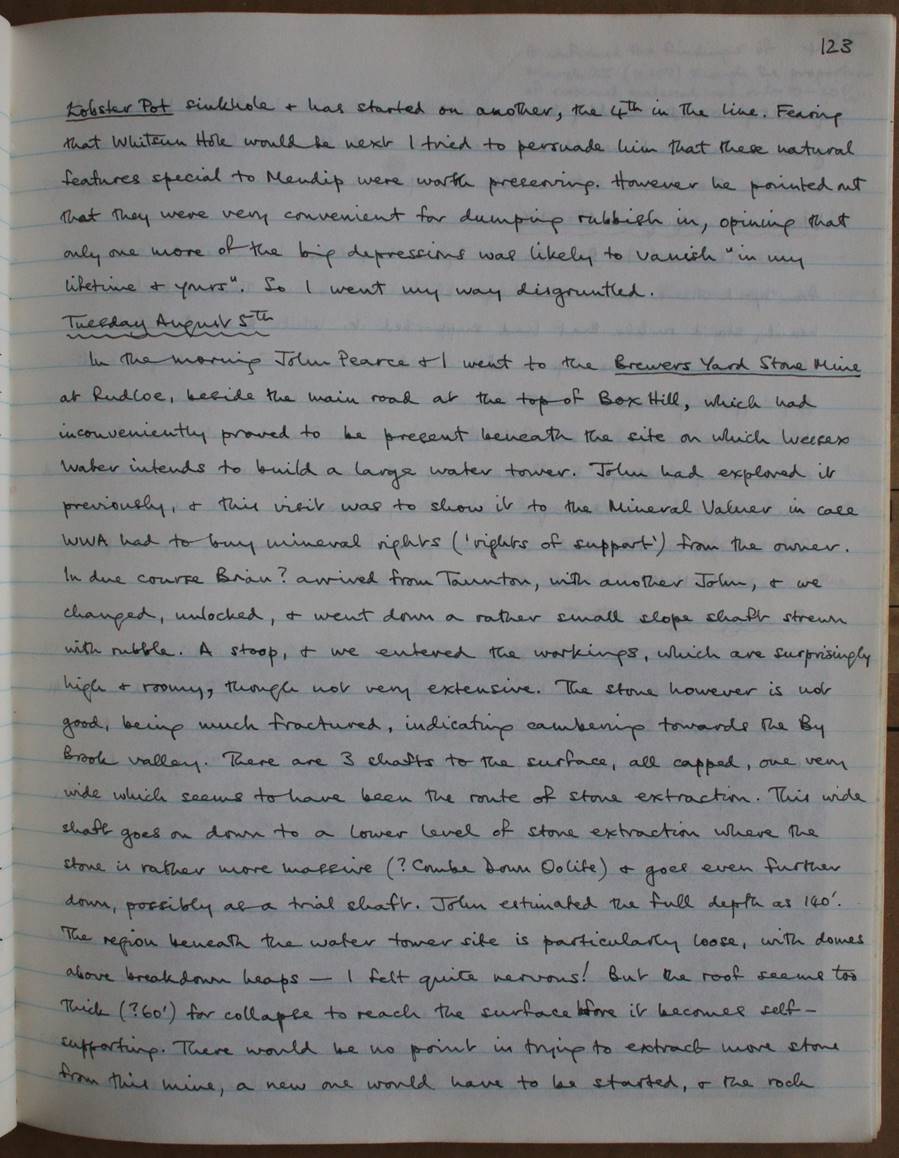 123
Lobster Pot sinkhole + has started on another, the 4th in the line. Fearing
that Whitsun Hole would be next I tried to persuade him that these natural
features special to Mendip were worth preserving. However he pointed out
that they were very convenient for dumping rubbish in, opining that
only one more of the big depressions was likely to vanish "in my
lifetime + yours". So I went my way disgruntled.
Tuesday August 5th
In the morning John Pearce + I went to the Brewers Yard Stone Mine
at Rudloe, beside the main road at the top of Box Hill, which had
inconveniently proved to be present beneath the site on which Wessex
Water intends to build a large water tower. John had explored it
previously, + this visit was to show it to the Mineral Valuer in case
WWA had to buy mineral rights ('rights of support') from the owner.
In due course Brian? arrived from Taunton, with another John, + we
changed, unlocked, + went down a rather small slope shaft strewn
with rubble. A stoop, + we entered the workings, which are surprisingly
high + roomy, though not very extensive. The stone however is not
good, being much fractured, indicating cambering towards the By
Brook valley. There are 3 shafts to the surface, all capped, one very
wide which seems to have been the route of stone extraction. This wide
shaft goes on down to a lower level of stone extraction where the
stone is rather more massive (? Combe Down Oolite) + goes even further
down, possibly as a trial shaft. John estimated the full depth as 140'.
The region beneath the water tower site is particularly loose, with domes
above breakdown heaps — I felt quite nervous! But the roof seems too
thick (?60') for collapse to reach the surface before it becomes self-
supporting. There would be no point in trying to extract more stone
from this mine, a new one would have to be started, + the rock